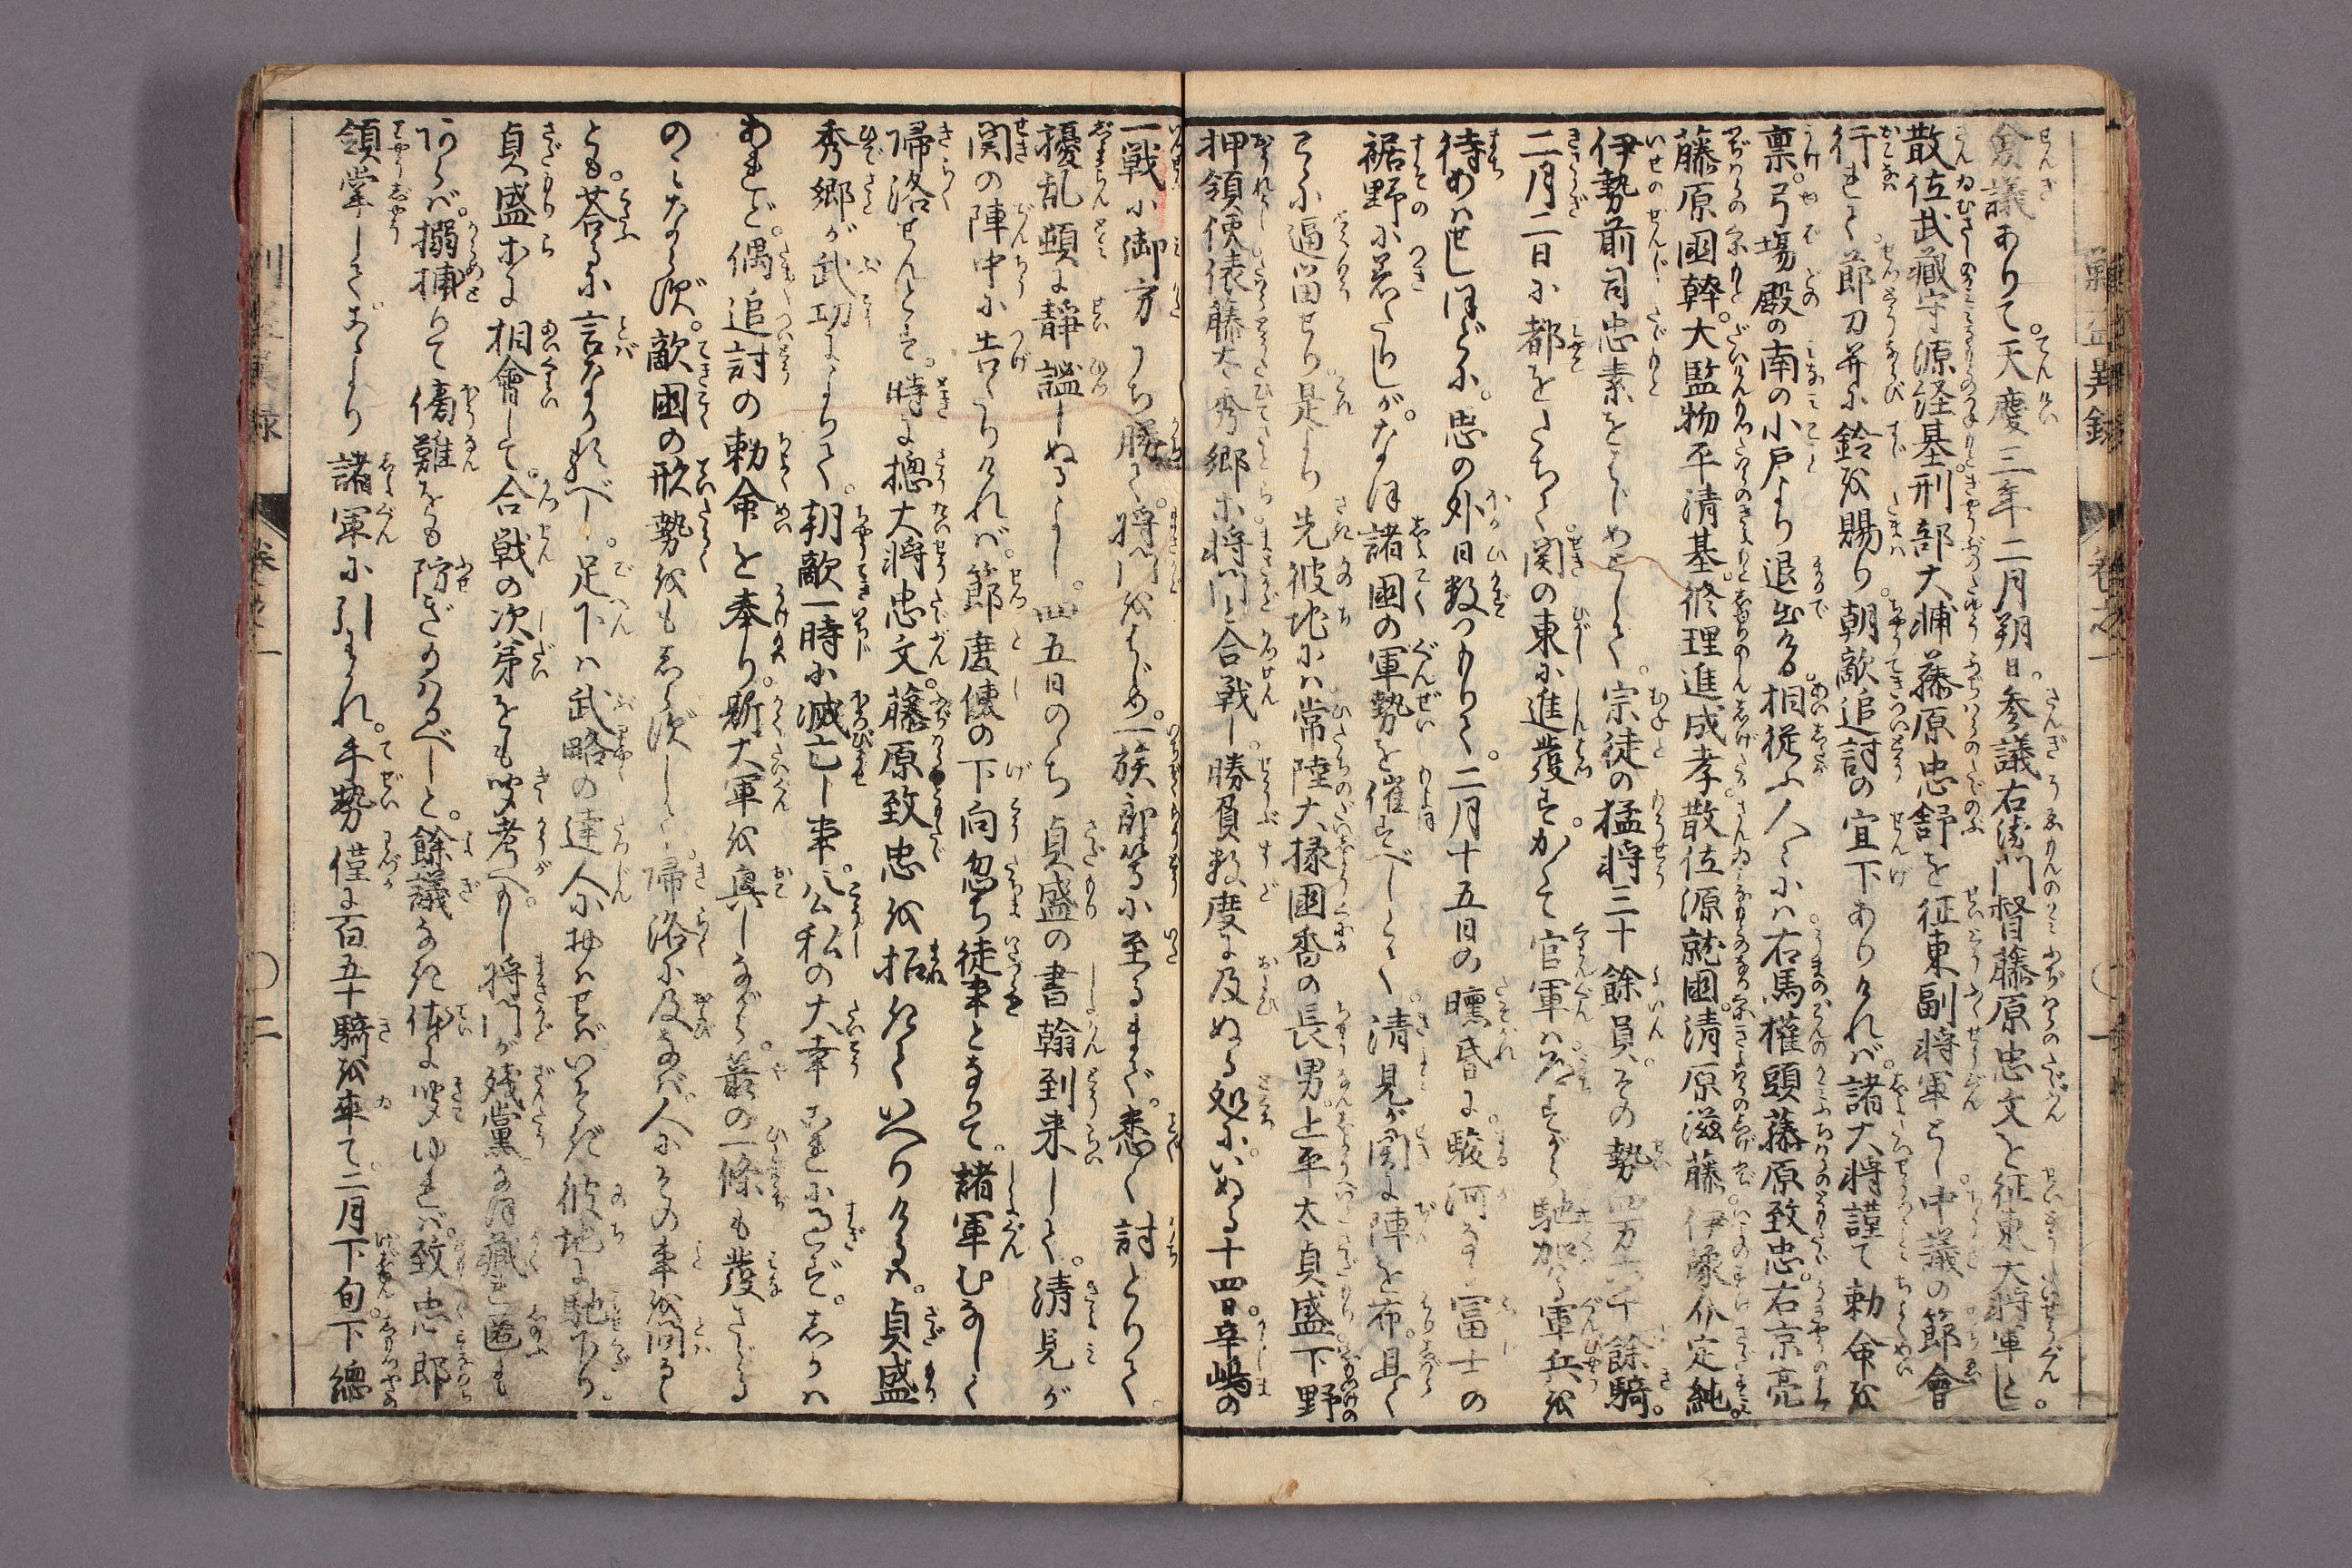 僉議ありて。天慶三年二月朔日。参議右衛門督藤原忠文を征東大将軍とし。
散位武藏守源経基。刑部大輔藤原忠舒を征東副将軍とし。中議の節會
行れて。節刀并に鈴を賜り。朝敵追討の宣下ありければ。諸大将謹て勅命を
稟。弓塲殿の南の小戸より退出ける。相従ふ人々には右馬權頭藤原致忠。右京亮
藤原國幹。大監物平清基。修理進成孝。散位源就國。清原滋藤。伊豫介定純。
伊勢前司忠素をはじめとして。宗徒の猛将三十餘員。その勢四万六千餘騎。
二月二日に都をたちて。関の東に進發す。かくて官軍は道すがら馳加る軍兵を
待あはせしほどに。思の外日数つもりて。二月十五日の曛昏に。駿河なる冨士の
裾野に着たりしが。なほ諸國の軍勢を催すべしとて。清見が関に陣を布。且く
こゝに逼畄せり。是より先彼地には常陸大掾國香の長男。上平太貞盛。下野
押領使俵藤太秀郷ホ将門と合戦し。勝負数度に及ぬる処に。いぬる十四日。辛嶋の
一戦に御方うち勝て。将門をはじめ。一族郎等に至るまで。悉く討とりて。
擾乱頓に静謐しぬるよし。四五日のち貞盛の書翰到来して。清見が
関の陣中に告たりければ。節度使の下向忽ち徒事となりて。諸軍むなしく
帰洛せんとす。時に摠大将忠文。藤原致忠を招きていへりけるは。貞盛
秀郷が武功によりて。朝敵一時に滅亡し事。公私の大幸これに過ず。しかは
あれど。偶追討の勅命を奉り。斯大軍を興しながら。箭の一條も發さゞる
のみならず。敵國の形勢をもしらずして。帰洛に及なば。人にその事を問るゝ
とも。荅るに言なかるべし。足下は武略の達人におはせば。いそぎ彼地に馳下り。
貞盛ホに相會して。合戦の次第をも聞考へ。もし将門が残黨なほ藏れ匿も
あらば。搦捕りて傷難をも防ぎ給ふべしと。餘議なき体に聞ゆれば。致忠即
領掌して。これより諸軍に引わかれ。手勢僅に百五十騎を率て。二月下旬。下總
巻之一
〇一
〇二